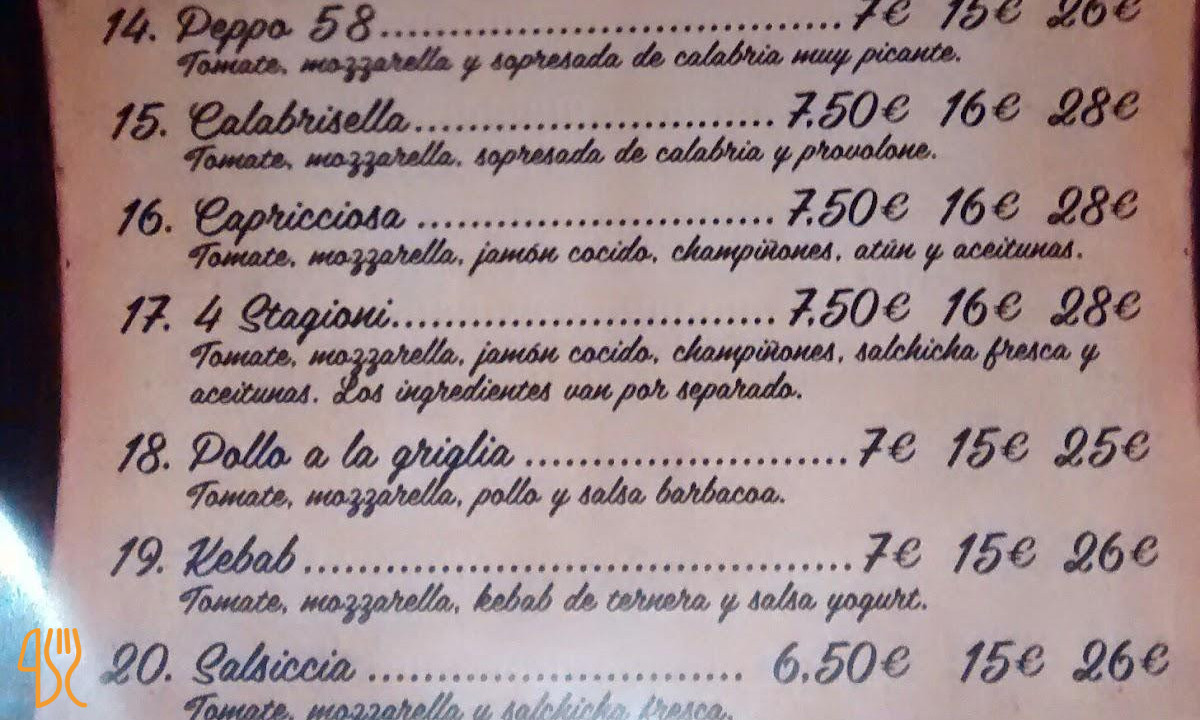 14. Peppo 58........................................7€ 15€ 26€
Tomate, mozzarella y sopresada de calabria muy picante.
15. Calabrisella..............................7.50€ 16€ 28€
Tomate, mozzarella, sopresada de calabria y provolone.
16. Capricciosa ..............................7.50€ 16€ 28€
Tomate, mozzarella, jamón cocido, champiñones, atún y aceitunas.
17. 4 Stagioni................................7.50€ 16€ 28€
Tomate, mozzarella, jamón cocido, champiñones, salchicha fresca y
aceitunas. Los ingredientes van por separado.
18. Pollo a la griglia ...........................7€ 15€ 25€
Tomate, mozzarella, pollo y salsa barbacoa.
19. Kebab..............................................7€ 15€ 26€
Tomate, mozzarella, kebab de ternera y salsa yogurt.
20. Salsiccia ................................ 6,50€ 15€ 26€
Tomate, mozzarella y salchicha fresca.